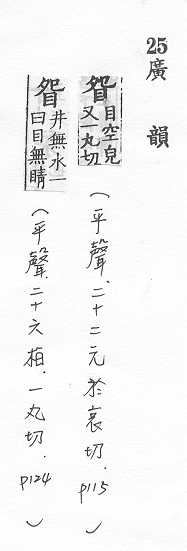 25
廣韻
眢目空皃
又一丸切
(平聲.二十二元於袁切.p115)
眢井無水一
曰目無睛
(平聲.二十六桓.一丸切.p124)